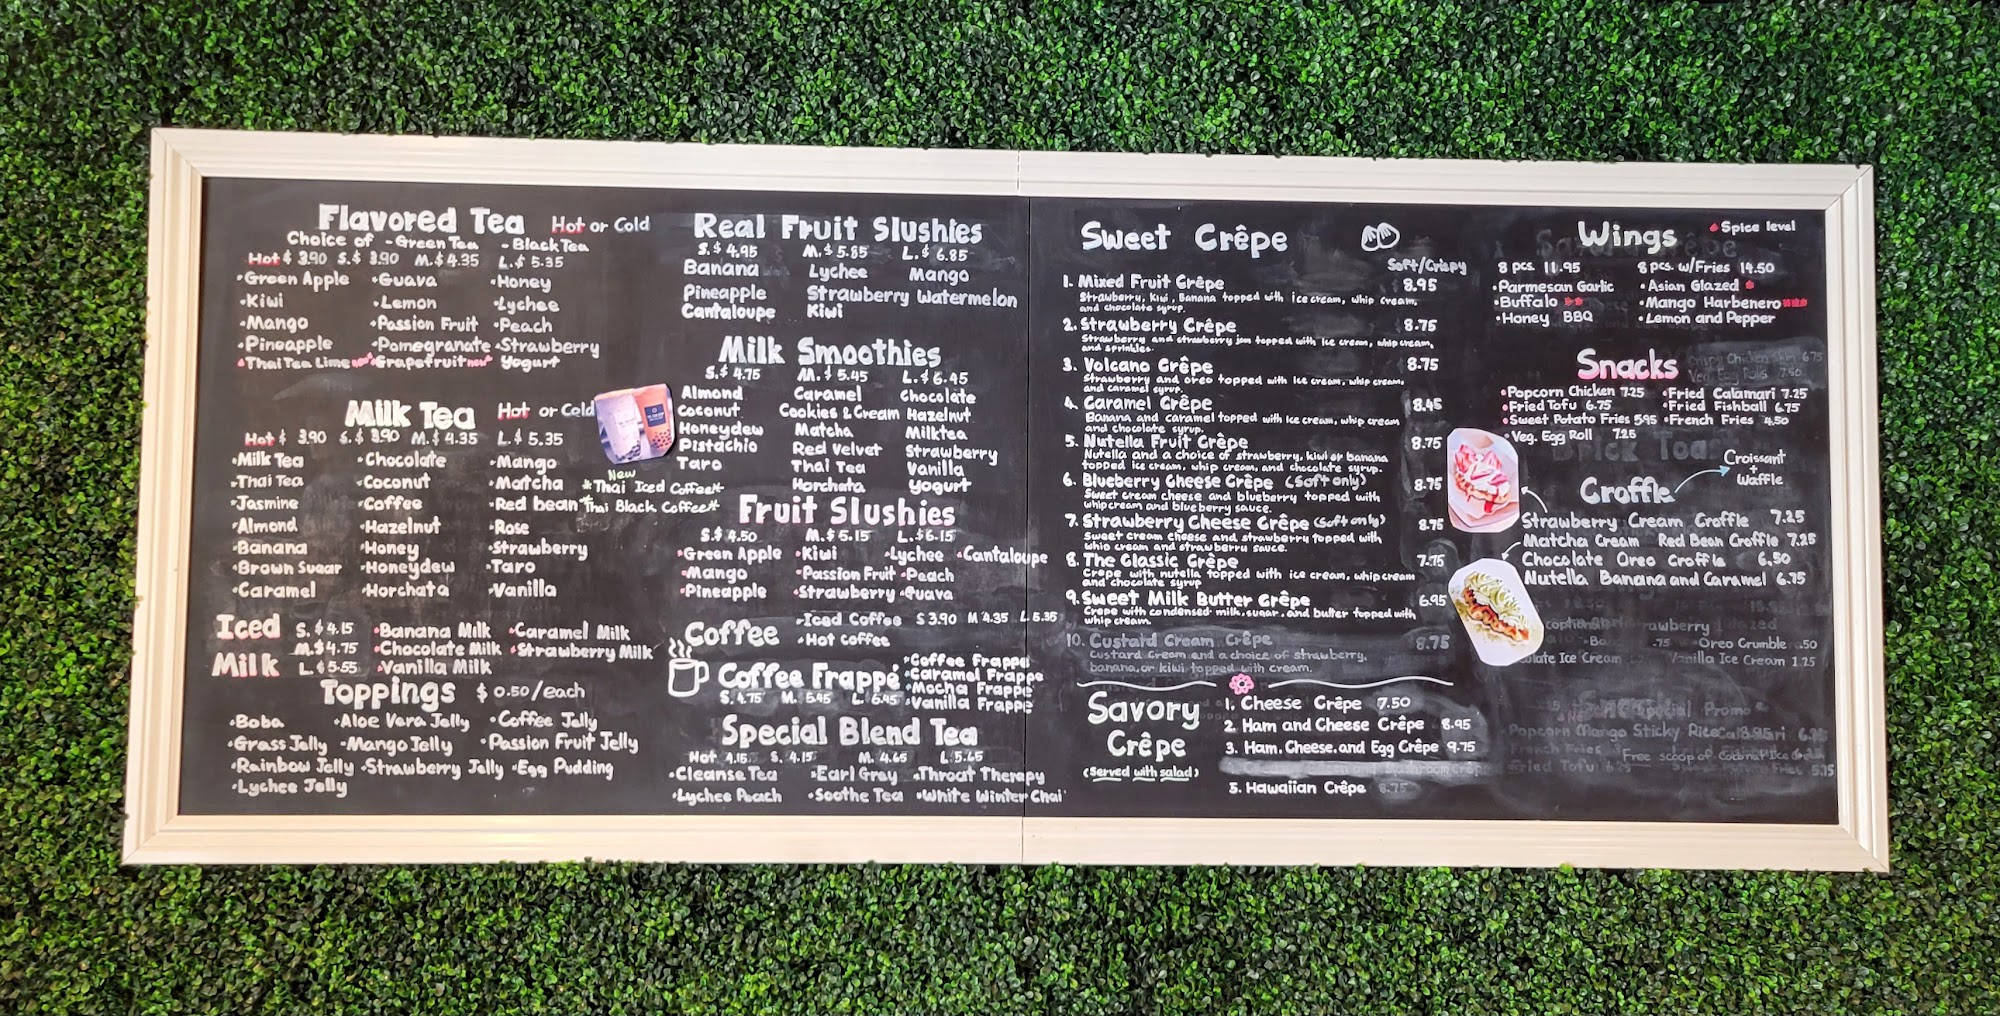 Flavored Tea Hot or Cold
Choice of - Green Tea - Black Tea
Hot $ 3.90 S.$ 3.90 M.$ 4.35 L.$ 5.35
•Green Apple •Guava •Honey
•Kiwi •Lemon •Lychee
•Mango •Passion Fruit •Peach
•Pineapple •Pomegranate •Strawberry
•Thai Tea Lime new •Grapefruit new •Yogurt
Milk Tea Hot or Cold
Hot $ 3.90 S.$ 3.90 M.$ 4.35 L.$ 5.35
•Milk Tea •Chocolate •Mango
•Thai Tea •Coconut •Matcha
•Jasmine •Coffee •Red bean
•Almond •Hazelnut •Rose
•Banana •Honey •Strawberry
•Brown Sugar •Honeydew •Taro
•Caramel •Horchata •Vanilla
New
*Thai Iced Coffee*
*Thai Black Coffee*
Iced Milk
S. $ 4.15
M.$ 4.75
L. $ 5.55
•Banana Milk •Caramel Milk
•Chocolate Milk •Strawberry Milk
•Vanilla Milk
Toppings $ 0.50/each
•Boba •Aloe Vera Jelly •Coffee Jelly
•Grass Jelly •Mango Jelly •Passion Fruit Jelly
•Rainbow Jelly •Strawberry Jelly •Egg Pudding
•Lychee Jelly
Real Fruit Slushies
S.$ 4.95 M.$ 5.85 L.$ 6.85
Banana Lychee Mango
Pineapple Strawberry Watermelon
Cantaloupe Kiwi
Milk Smoothies
S.$ 4.75 M.$ 5.45 L.$ 6.45
Almond Caramel Chocolate
Coconut Cookies & Cream Hazelnut
Honeydew Matcha Milktea
Pistachio Red Velvet Strawberry
Taro Thai Tea Vanilla
Horchata Yogurt
Fruit Slushies
S.$ 4.50 M.$ 5.15 L.$ 6.15
•Green Apple •Kiwi •Lychee •Cantaloupe
•Mango •Passion Fruit •Peach
•Pineapple •Strawberry •Guava
Coffee
•Iced Coffee S 3.90 M 4.35 L 5.35
•Hot Coffee
Coffee Frappé
S. 4.75 M. 5.45 L. 6.45
•Coffee Frappe
•Caramel Frappe
•Mocha Frappe
•Vanilla Frappe
Special Blend Tea
Hot 4.15 S. 4.15 M. 4.65 L 5.65
•Cleanse Tea •Earl Grey •Throat Therapy
•Lychee Peach •Soothe Tea •White Winter Chai
Sweet Crêpe
Soft/Crispy
1. Mixed Fruit Crêpe 8.95
Strawberry, Kiwi, Banana topped with ice cream, whip cream,
and chocolate syrup.
2. Strawberry Crêpe 8.75
Strawberry and strawberry jam topped with ice cream, whip cream,
and sprinkles.
3. Volcano Crêpe 8.75
Strawberry and oreo topped with ice cream, whip cream,
and caramel syrup.
4. Caramel Crêpe 8.45
Banana and caramel topped with ice cream, whip cream
and chocolate syrup.
5. Nutella Fruit Crêpe 8.75
Nutella and a choice of strawberry, kiwi or banana
topped ice cream, whip cream, and chocolate syrup.
6. Blueberry Cheese Crêpe (Soft only) 8.75
Sweet cream cheese and blueberry topped with
whip cream and blueberry sauce.
7. Strawberry Cheese Crêpe (Soft only) 8.75
Sweet cream cheese and strawberry topped with
whip cream and strawberry sauce.
8. The Classic Crêpe 7.75
Crêpe with nutella topped with ice cream, whip cream
and chocolate syrup
9. Sweet Milk Butter Crêpe 6.95
Crêpe with condensed milk, sugar, and butter topped with
whip cream.
10. Custard Cream Crêpe 8.75
Custard Cream and a choice of strawberry,
banana, or kiwi topped with cream.
Savory Crêpe
(Served with salad)
1. Cheese Crêpe 7.50
2. Ham and Cheese Crêpe 8.95
3. Ham, Cheese, and Egg Crêpe 9.75
5. Hawaiian Crêpe 8.75
Wings Spice level
8 pcs. 11.95 8 pcs. w/Fries 14.50
•Parmesan Garlic •Asian Glazed
•Buffalo •Mango Harbenero
•Honey BBQ •Lemon and Pepper
Snacks
Crispy Chicken Skin 6.75
•Popcorn Chicken 7.25 •Fried Calamari 7.25
•Fried Tofu 6.75 •Fried Fishball 6.75
•Sweet Potato Fries 5.95 •French Fries 4.50
•Veg. Egg Roll 7.25
Croffle
Croissant
+
Waffle
Strawberry Cream Croffle 7.25
Matcha Cream Red Bean Croffle 7.25
Chocolate Oreo Croffle 6.50
Nutella Banana and Caramel 6.75
Oreo Crumble .50
Vanilla Ice Cream 1.25
Mango Sticky Rice
Free scoop of Coconut Ice